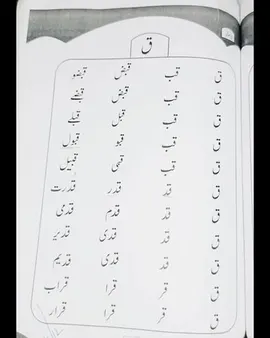 ق
ق قب قبض قبضہ
ق قب قبض قبضے
ق قب قبل قبلے
ق قب قبو قبول
ق قب قبی قبیل
ق قد قدر قدرت
ق قد قدم قدمی
ق قد قدی قدیر
ق قد قدی قدیم
ق قر قرا قراب
ق قر قرا قرار